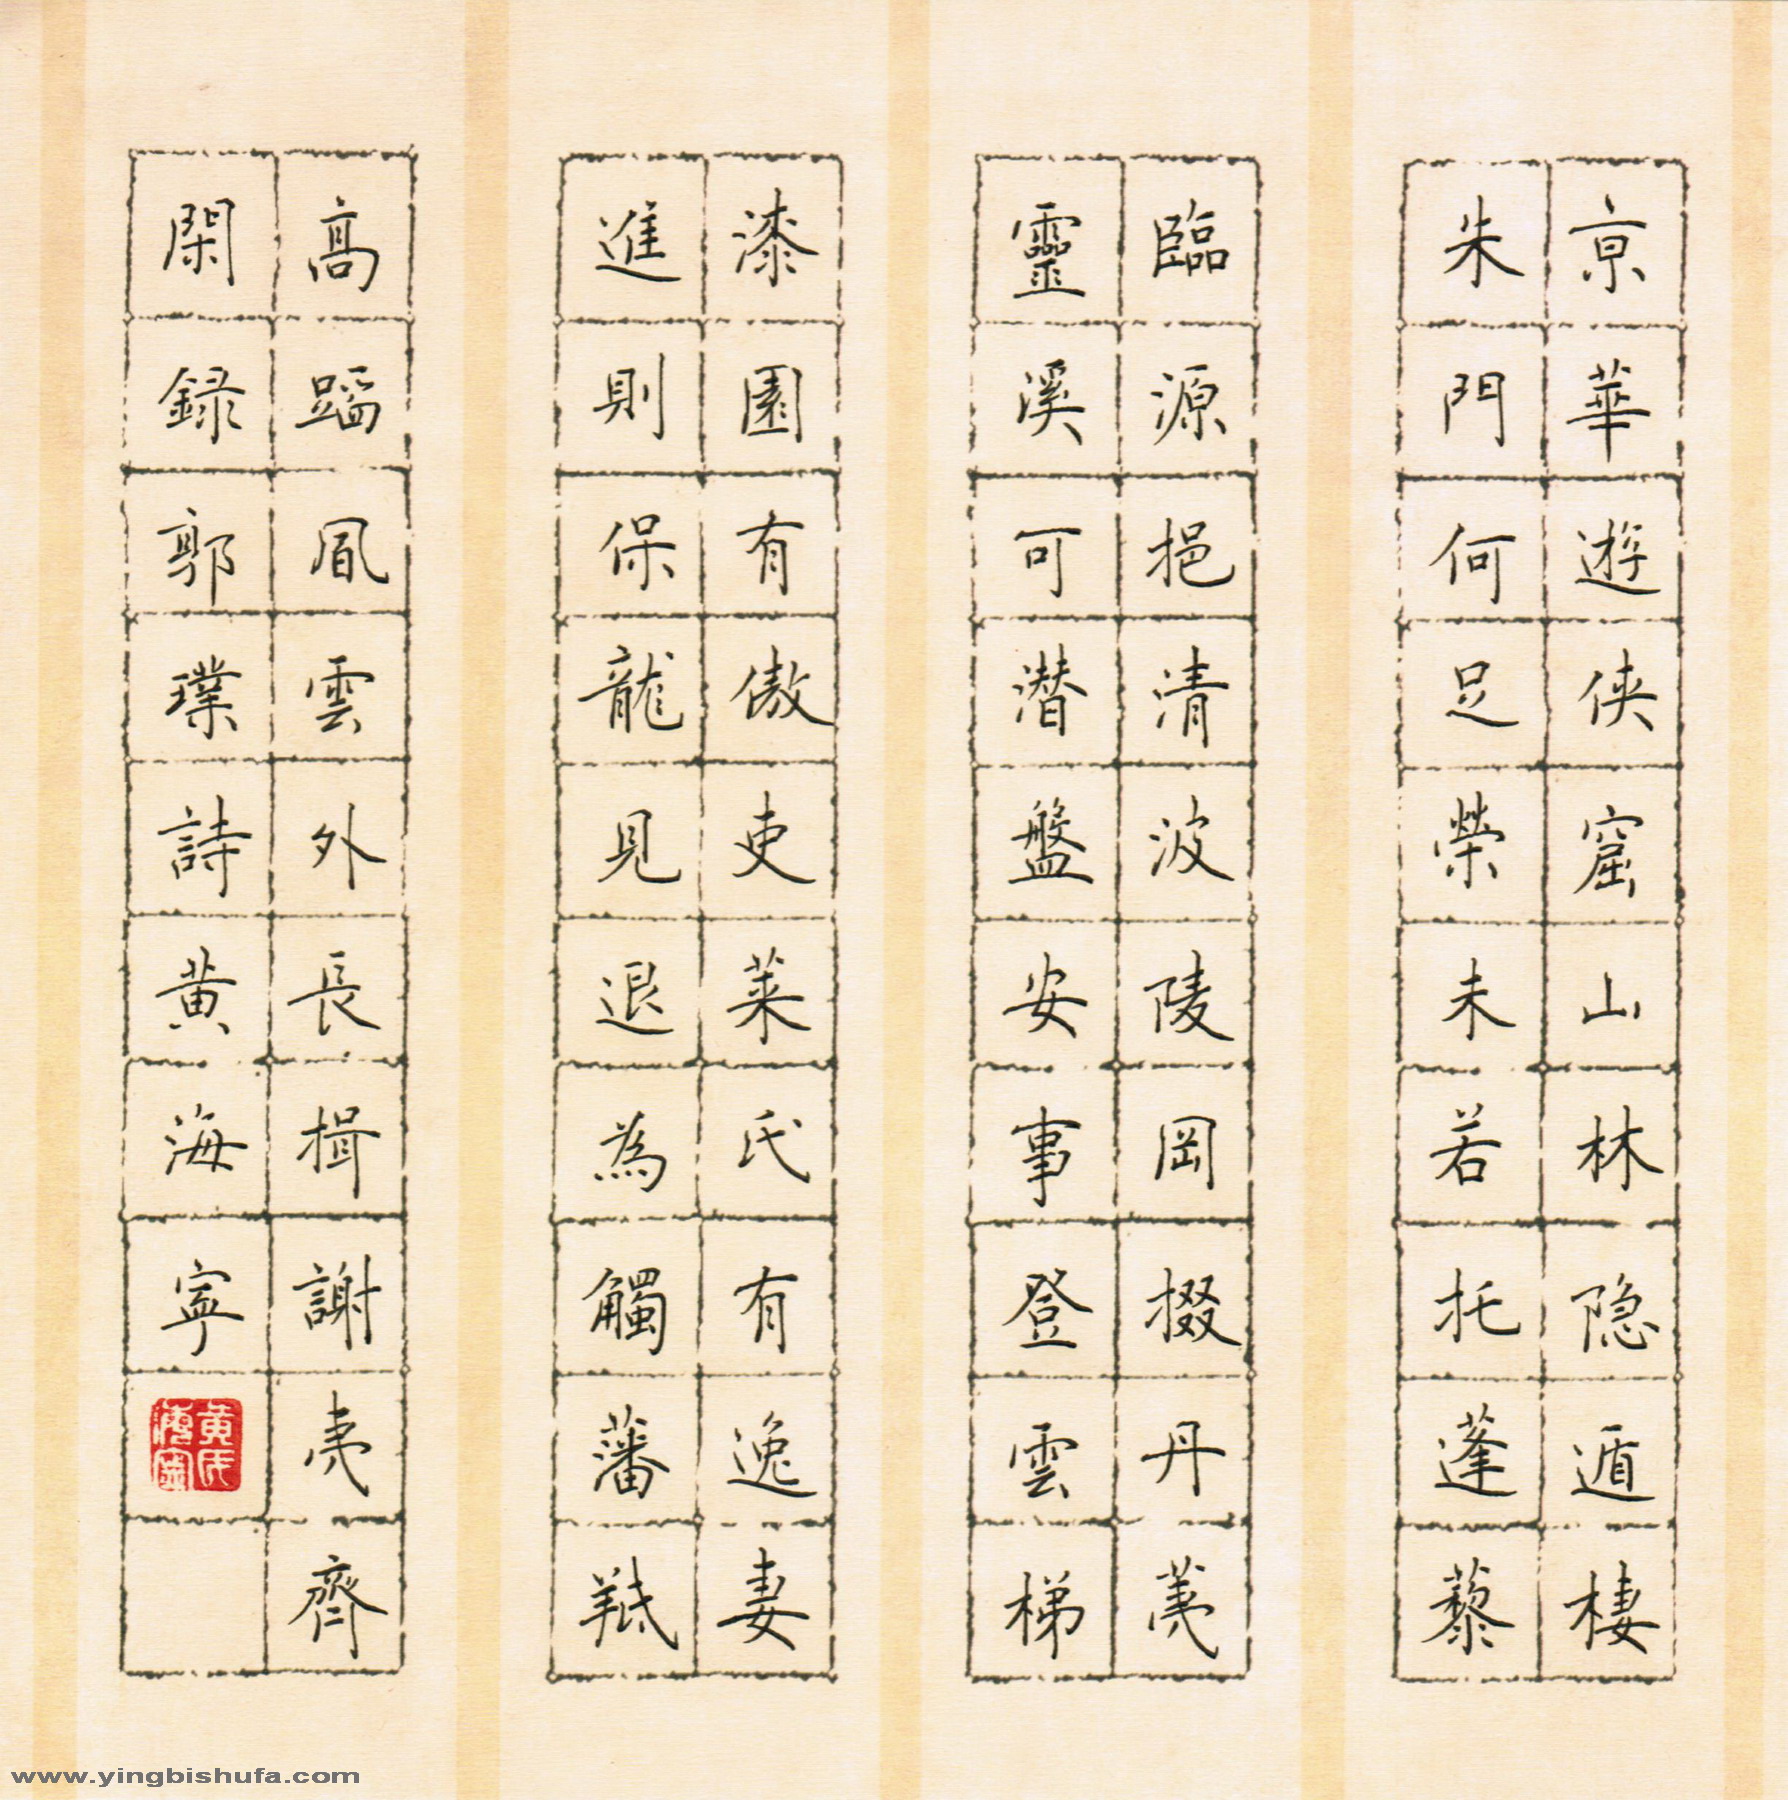 京華遊俠窟山林隐遁棲
朱門何足榮未若托蓬藜
臨源挹清波陵岡掇丹荑
靈溪可潜盤安事登雲梯
漆園有傲吏萊氏有逸妻
進則保龍見退為觸藩羝
高蹈風雲外長揖謝夷齊
閑録郭璞詩黄海寧
www.yingbishufa.com